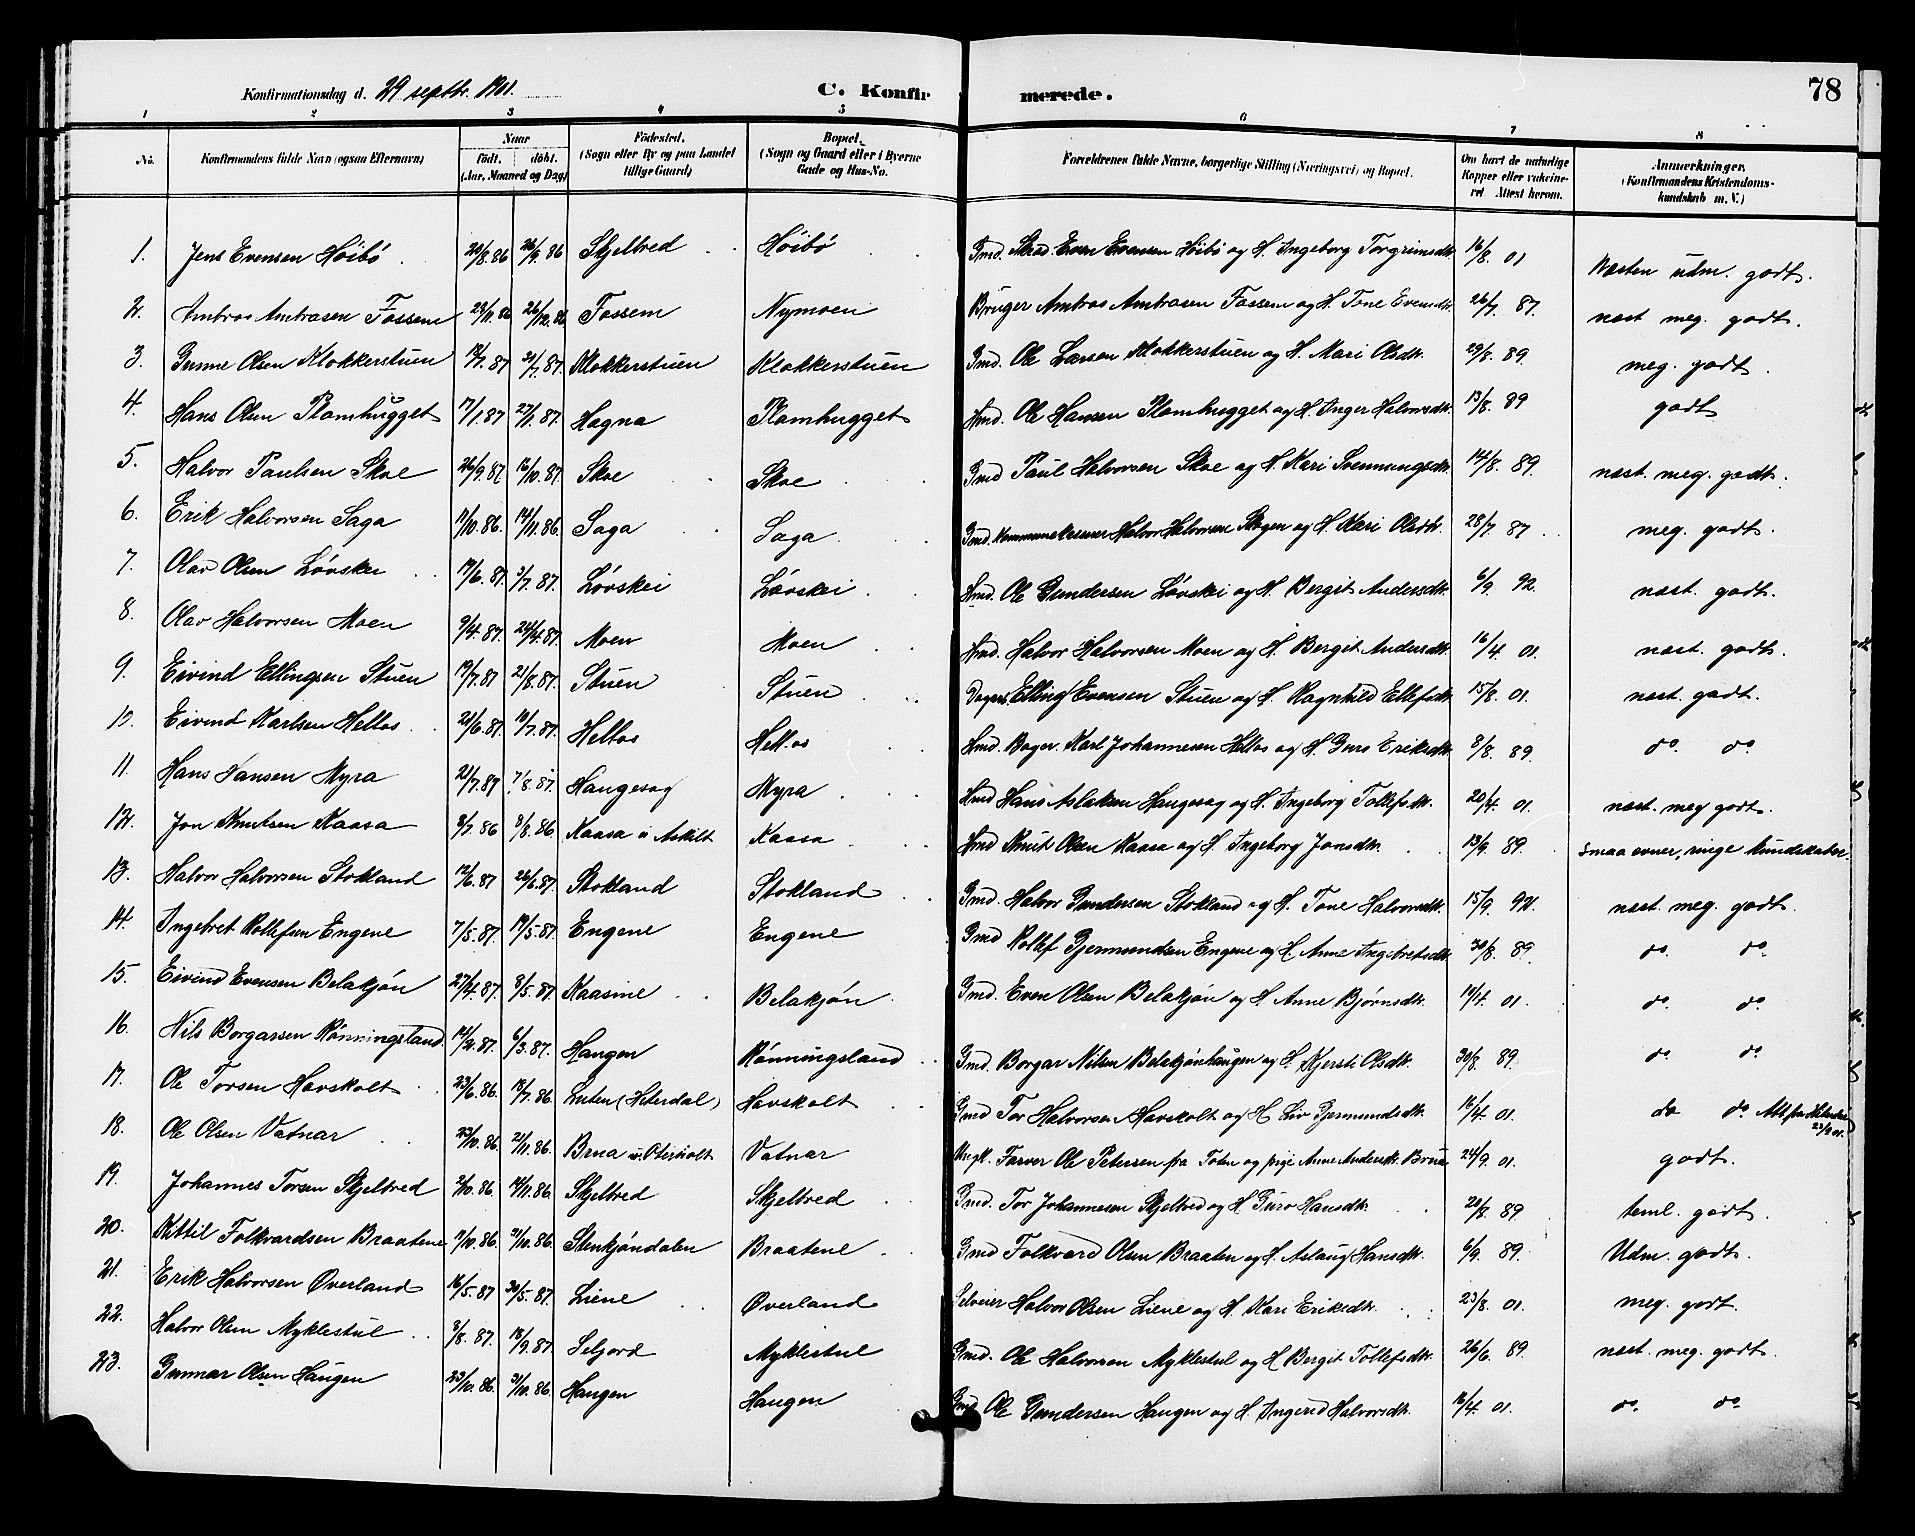 78
Konfirmationsdag d. 29 septbr. 1901.
C. Konfirmerede.
1 2 3 4 5 6 7 8
No. Konfirmandens fulde Navn (ogsaa Efternavn) Naar födt. döbt. (Aar, Maaned og Dag) Födested. (Sogn eller By og paa Landet tillige Gaard) Bopæl. (Sogn og Gaard eller i Byerne Gade og Hus-No. Forældrenes fulde Navne, borgerlige Stilling (Næringsvei) og Bopæl. Om havt de naturlige Kopper eller vakcineret. Attest herom. Anmærkninger. (Konfirmandens Kristendomskundskab m. V.)
1. Jens Evensen Höibö 20/8.86 26/9.86 Skjelbred Höibö Gmd. Skræd. Even Evensen Höibö og H. Ingeborg Torgrimsdtr. 16/8. 01 Næsten udm. godt.
2. Ambros Ambrosen Fossem 29/11.86 26/12.86 Fossem Nymoen Bruger Ambros Ambrosen Fossem og H. Tone Evensdtr. 26/7 87. næst meg. godt.
3. Gunne Olsen Klokkerstuen 18/7.87 31/7.87. Klokkerstuen Klokkerstuen Gmd. Ole Larsen Klokkerstuen og H. Mari Olsdtr. 29/8. 89. meg. godt.
4. Hans Olsen Plomhugget 17/1.87 27/1.87. Hogna Plomhugget Hmd. Ole Hansen Plomhugget og H. Inger Halvorsdtr. 13/8. 89 godt
5. Halvor Paulsen Skoe 26/9.87 16/10.87. Skoe Skoe Gmd Paul Halvorsen Skoe og H. Kari Svennungsdtr. 14/8. 89. næst. meg. godt.
6. Erik Halvorsen Saga 17/10.86. 14/11.86. Saga Saga Gmd. Kommunekæmner Halvor Halvorsen Skogen og H. Kari Olsdtr. 28/7. 87. meg. godt.
7. Olav Olsen Lövskei 17/6.87. 3/7.87. Lövskei Lövskei Hmd. Ole Gundersen Lövskei og H. Bergit Andersdtr. 6/9. 92. næst. godt.
8. Olav Halvorsen Moen 9/4.87. 24/4.87. Moen Moen Hmd. Halvor Halvorsen Moen og H. Bergit Andersdtr. 16/4. 01. næst. godt.
9. Eivind Ellingsen Stuen 19/7.87 21/8.87. Stuen Stuen Elling Evensen Stuen og H. Ragnhild Ellefsdtr. 15/8. 01. næst. godt.
10. Eivind Karlsen Heltos 21/6.87. 10/7.87. Heltos Heltos Hmd. Bager. Karl Johannesen Heltos og H. Guro Eriksdtr. 8/8. 89. do. do.
11. Hans Hansen Myra 21/7.87 7/8.87. Haugesag Myra Hmd Hans Aslaksen Haugesag og H. Ingeborg Tollefsdtr. 20/4. 01. næst. meg godt.
12. Jon Knutsen Kaasa 3/7.86 8/8.86. Kaasa u. Askilt Kaasa Hmd Knut Olsen Kaasa og H. Ingeborg Jonsdtr. 13/9. 89. Smaa evner, ringe kundskaber.
13. Halvor Halvorsen Stokland 12/6.87 26/6.87. Stokland Stokland Gmd. Halvor Gundersen Stokland og H. Tone Halvorsdtr. 15/9. 92. næst. meg. godt.
14. Ingebret Rollefsen Engene 7/5.87. 19/5.87 Engene Engene Gmd Rollef Gjermundsen Engene og H. Anne Ingebretsdtr. 30/8. 89. do. do.
15. Eivind Evensen Belakjön 27/4.87. 8/5.87 Kaasine Belakjön Gmd. Even Olsen Belakjön og H. Anne Bjørnsdtr. 01. do. do.
16. Nils Borgarssen Rönningsland. 14/2.87. 6/3.87. Haugen Rönningsland Gmd. Borgar Nilsen Belakjönhaugen og H. Kjersti Olsdtr. 30/8. 89. do. do.
17. Ole Torsen Havskolt 23/6.86. 18/7.86. (Hiterdal) Havskolt Gmd Tor Halvorsen Havskolt og H Liv Gjermundsdtr. 16/4. 01. do do.
18. Ole Olsen Vatnar 23/10.86. 21/11.86. Brua u. Oterholt Vatnar Ungk. Farver Ole Petersen fra Toten og pige Anne Andersdtr. Brua 24/9. 01. godt.
19. Johannes Torsen Skjelbred 2/10.86. 14/11.86. Skjelbred Skjelbred Gmd. Tor Johannesen Skjelbred og H. Guro Hansdtr. 20/8. 89 teml. godt.
20. Kittil Folkvardsen Braatene 11/10.86. 31/10.86. Stenkjöndalen Braatene Gmd Folkvard Olsen Braaten og H. Aslaug Hansdtr. 6/9. 89. Udm. godt.
21. Erik Halvorsen Øverland 16/5.87 30/5.87. Liene Øverland Selveier Halvor Olsen Liene og H. Kari Eriksdtr. 23/8. 01. meg. godt.
22. Halvor Olsen Myklestul 8/8.87. 18/9.87. Seljord Myklestul Gmd. Ole Halvorsen Myklestul og H Bergit Tollefsdtr. 26/6. 89. næst. meg. godt.
23. Gunnar Olsen Haugen 23/10.86. 31/10.86. Haugen Haugen Gmd Ole Gundersen Haugen og H. Ingerid Halvorsdtr. 16/4. 01. do. do.